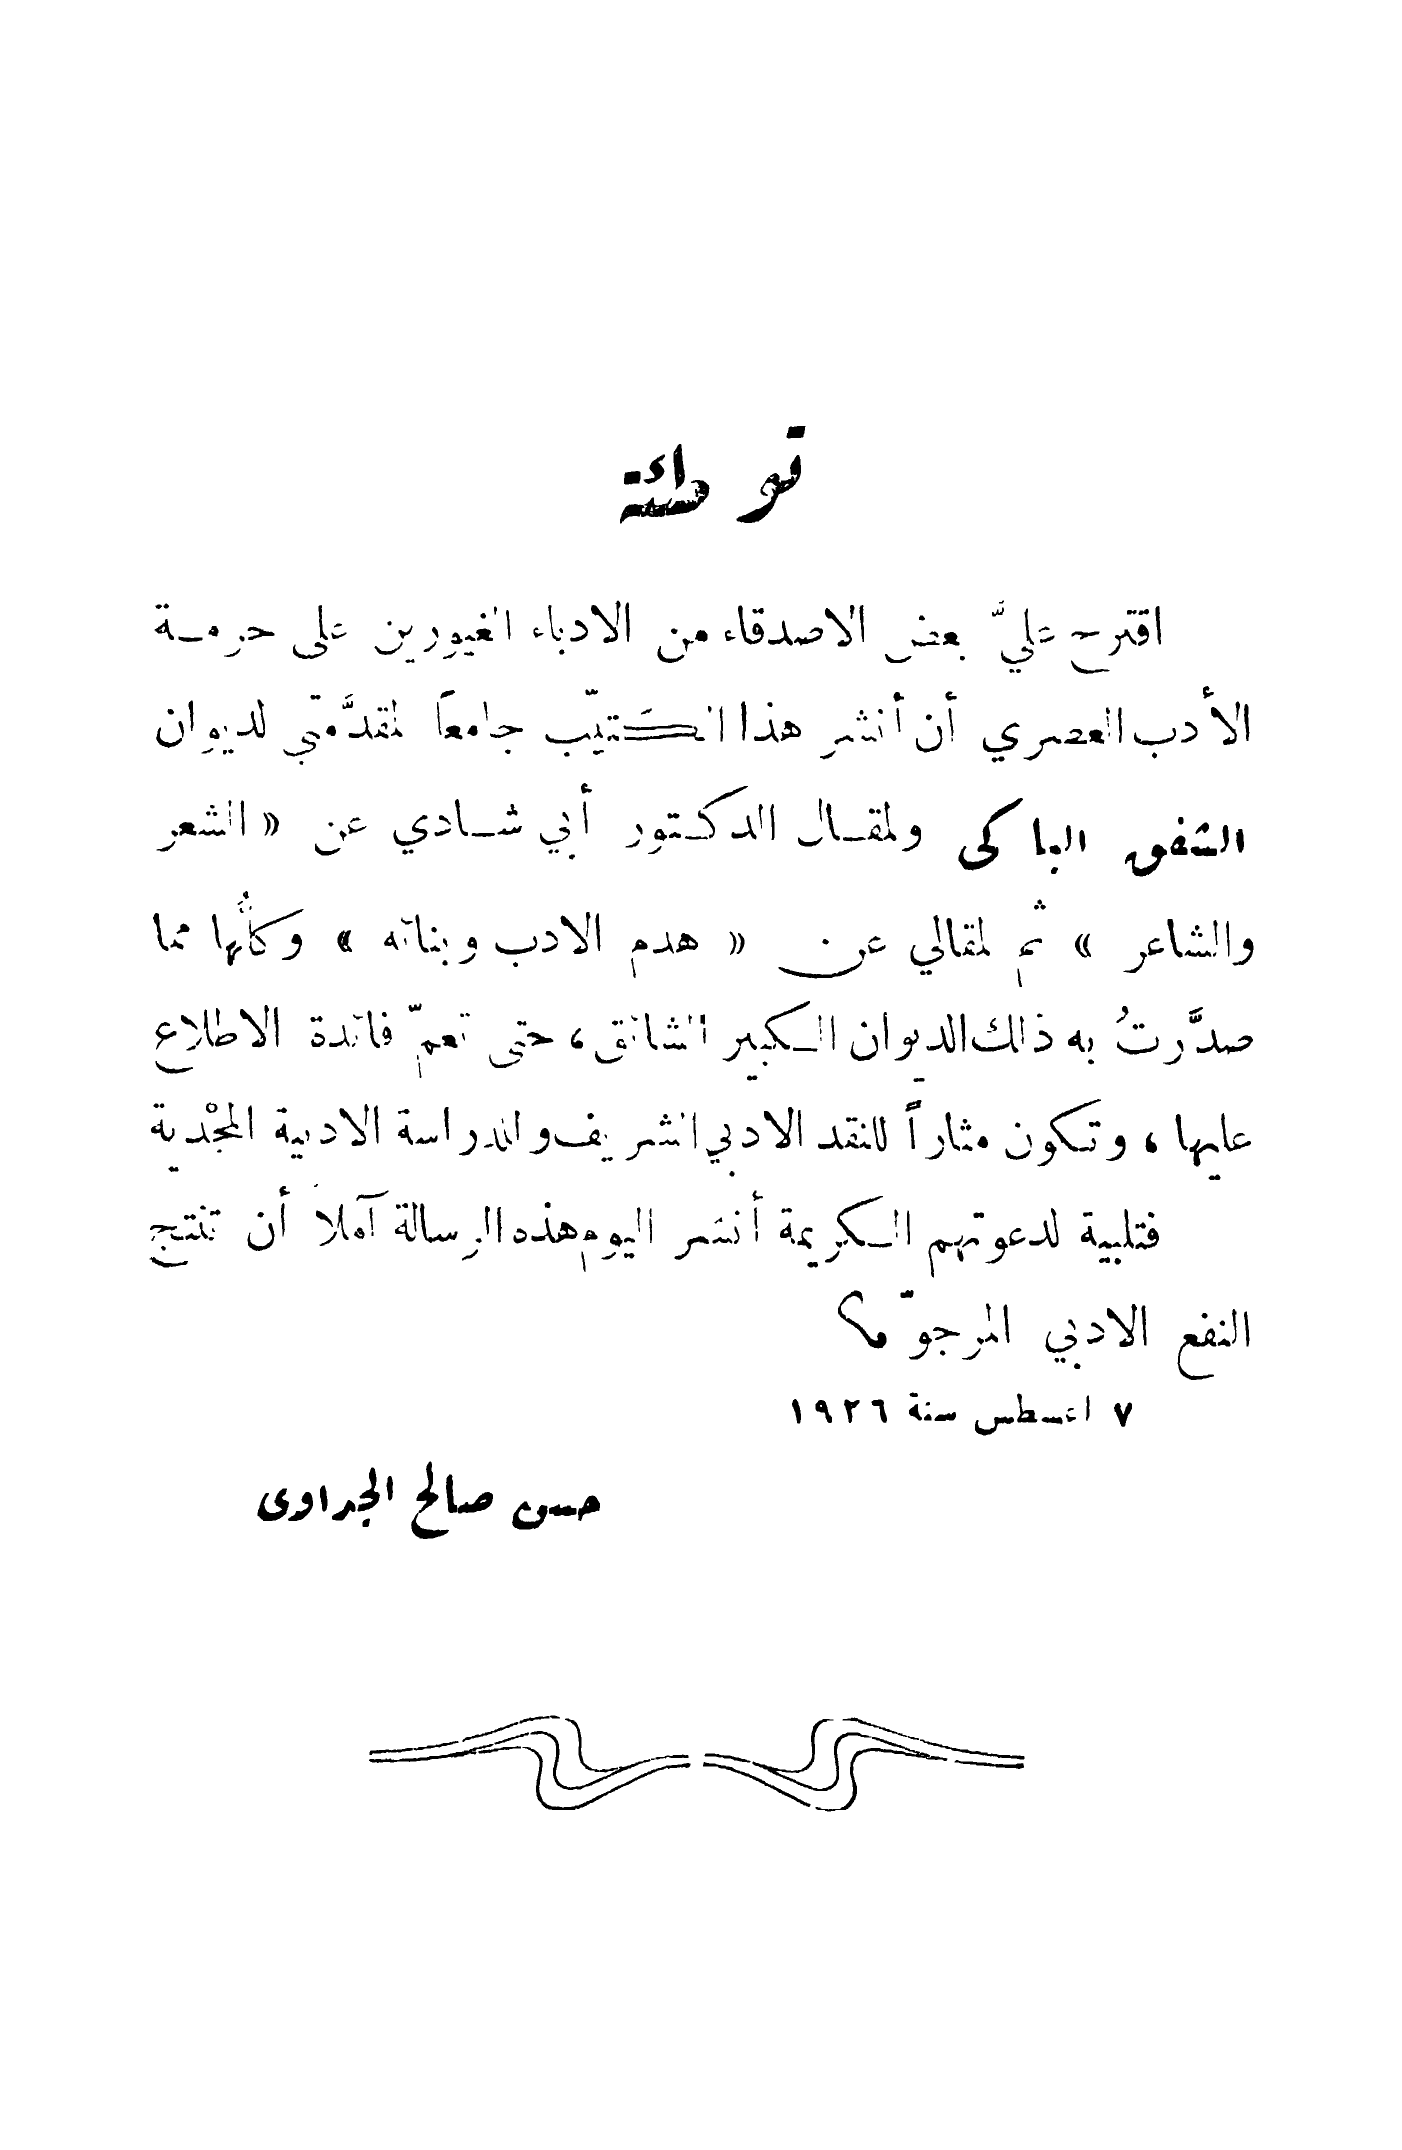 توطئة
اقترح عليَّ بعض الاصدقاء من الادباء الغيورين على حرمة
الأدب العصري أن أنشر هذا الكتَيّب جامعاً لمقدَّمتي لديوان
الشفق الباكى ولمقال الدكتور أبي شادي عن « الشعر
والشاعر » ثم لمقالي عن « هدم الادب وبناته » وكلُّها مما
صدَّرتُ به ذلك الديوان الكبير الشائق، حتى تعمّ فائدة الاطلاع
عليها، وتكون مثاراً للنقد الادبي الشريف والدراسة الادبية المجْدية
فتلبية لدعوتهم الكريمة أنشر اليوم هذه الرسالة آملاً أن تنتج
النفع الادبي المرجوّ
٧ اغسطس سنة ١٩٢٦
حسن صالح الجداوى